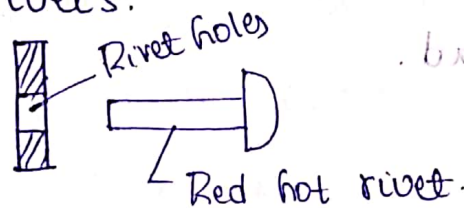 Rivet holes
Red hot rivet.